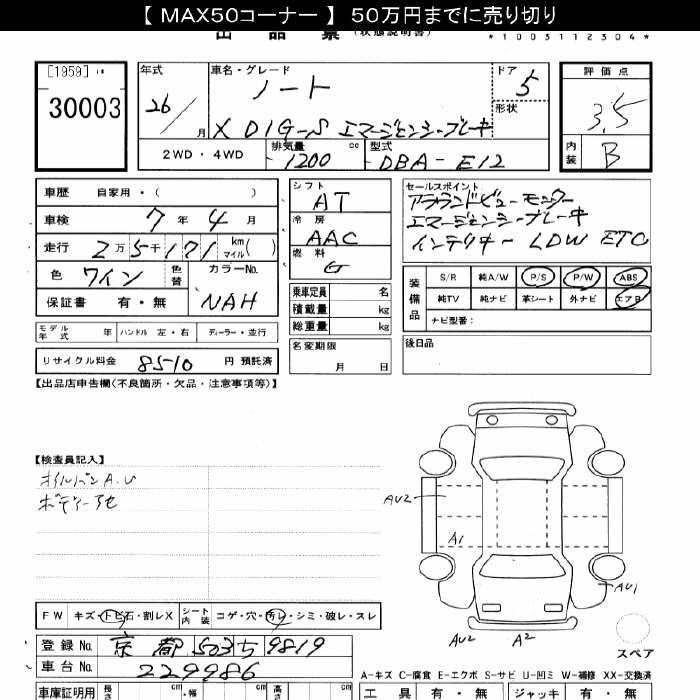 【 MAX50コーナー 】 50万円までに売り切り
出 品 票 (状態説明書)
*1003112304*
[1959]
30003
年式 26/ 月
車名・グレード ノート
X DIG-S エマージェンシーブレーキ
ドア 5
形状
評価点 3.5
内装 B
2WD・4WD
排気量 1200 cc
型式 DBA-E12
車歴 自家用・( )
車検 7年 4月
走行 2万5千171 km マイル ( )
色 ワイン 色替
カラーNo. NAH
保証書 有・無
シフト AT
冷房 AAC
燃料 G
乗車定員 名
積載量 kg
総重量 kg
セールスポイント
アラウンドビューモニター
エマージェンシーブレーキ
インテリキー LDW ETC
装備品
S/R 純A/W P/S P/W ABS
純TV 純ナビ 革シート 外ナビ エアB
ナビ型番:
モデル年式 年 ハンドル 左・右 ディーラー・並行
リサイクル料金 8510 円 預託済
名変期限 月 日
後日品
【出品店申告欄(不良箇所・欠品・注意事項等)】
【検査員記入】
オイルパンA.U
ボディーアセ
AU2
A1
AU1
AU2
A2
スペア
FW キズ・トビ石・割レX シート内装 コゲ・穴・汚レ・シミ・破レ・スレ
登録No. 京都 503 ち 9819
車台No. 229986
A-キズ C-腐食 E-エクボ S-サビ U-凹ミ W-補修 XX-交換済
車庫証明用 長さ cm 幅 cm 高さ cm
工具 有・無 ジャッキ 有・無